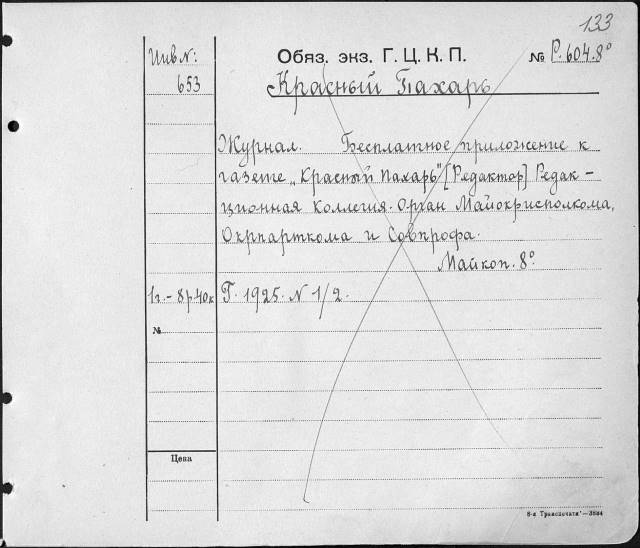 133
Инв №: Обяз. экз. Г. Ц. К. П. № Р.604.8°
653 Красный Пахарь
Журнал. Бесплатное приложение к
газете „Красный Пахарь" [Редактор] Редак-
ционная Коллегия. Орган Майокрисполкома,
Окрпарткома и Совпрофа.
Майкоп. 8°
1г.-8р.40к Г. 1925. N 1/2.
№
Цена
6-я Транспечати"—3894